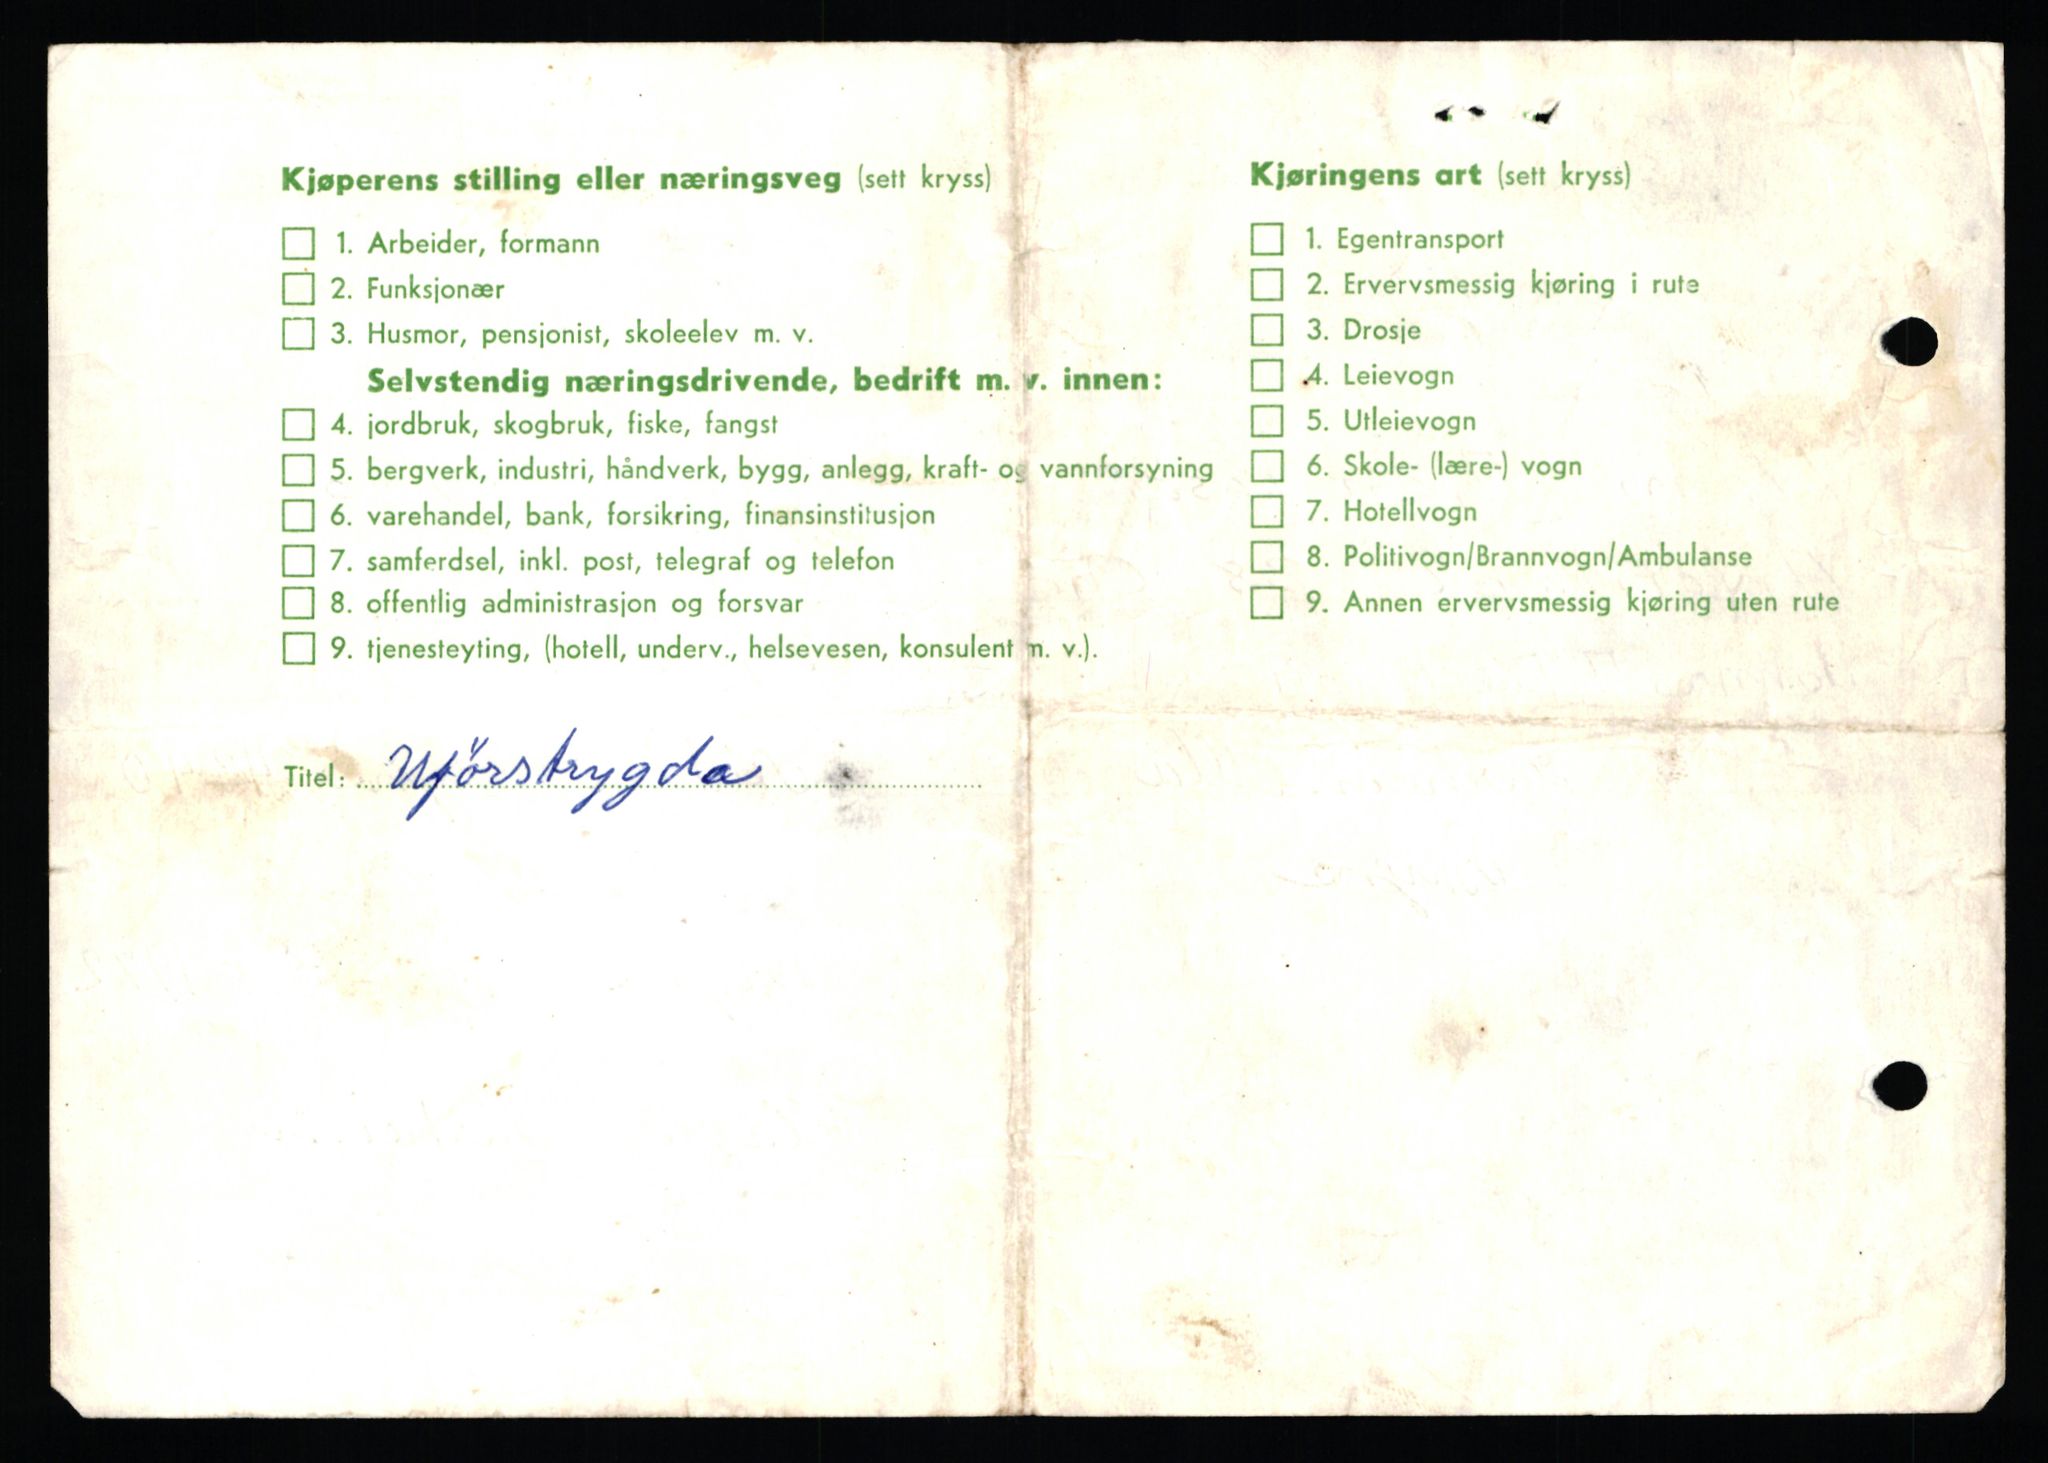 Kjøperens stilling eller næringsveg (sett kryss)
1. Arbeider, formann
2. Funksjonær
3. Husmor, pensjonist, skoleelev m. v.
Selvstendig næringsdrivende, bedrift m. v. innen:
4. jordbruk, skogbruk, fiske, fangst
5. bergverk, industri, håndverk, bygg, anlegg, kraft- og vannforsyning
6. varehandel, bank, forsikring, finansinstitusjon
7. samferdsel, inkl. post, telegraf og telefon
8. offentlig administrasjon og forsvar
9. tjenesteyting, (hotell, underv., helsevesen, konsulent m. v.).
Titel: Uförstrygda
Kjøringens art (sett kryss)
1. Egentransport
2. Ervervsmessig kjøring i rute
3. Drosje
4. Leievogn
5. Utleievogn
6. Skole- (lære-) vogn
7. Hotellvogn
8. Politivogn/Brannvogn/Ambulanse
9. Annen ervervsmessig kjøring uten rute